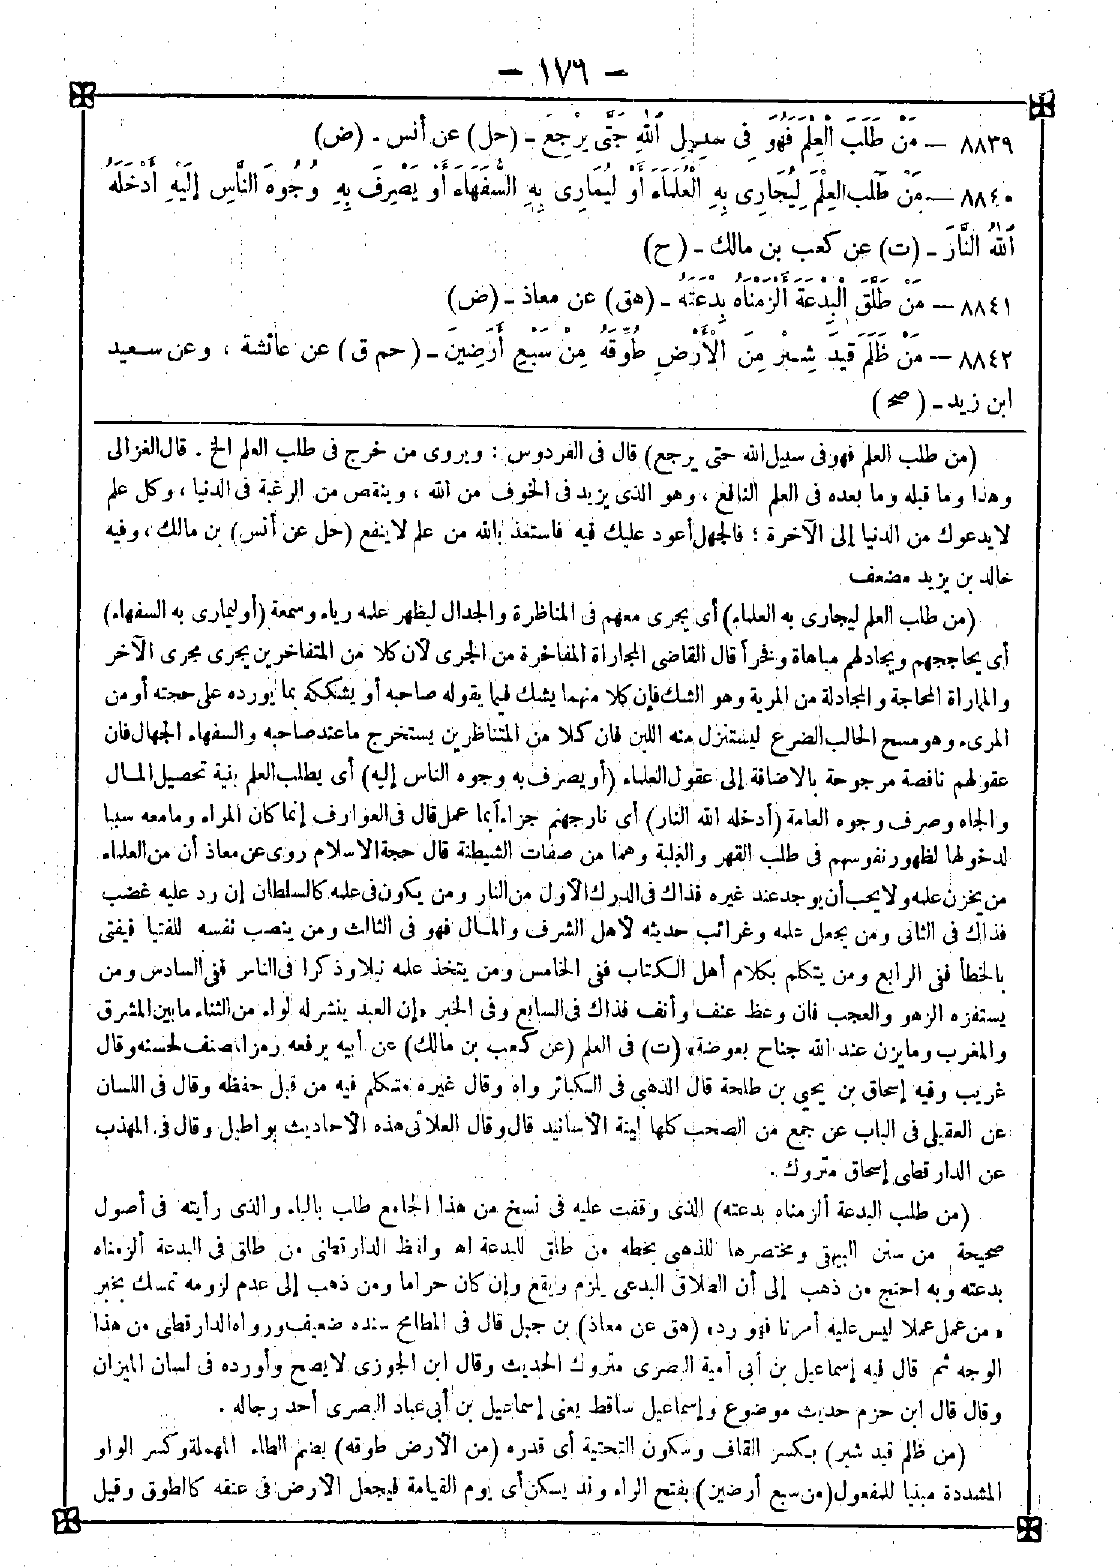 - ١٧٦ -
٨٨٣٩ - مَنْ طَلَبَ الْعِلْمَ فَهُوَ فِى سَبِيلِ اللهِ حَتَّى يَرْجِعَ - (حل) عن أنس - (ض)
٨٨٤٠ - مَنْ طَلَبَ العِلْمَ لِيُجَارِىَ بِهِ الْعُلَمَاءَ أَوْ لِيُمَارِىَ بِهِ السُّفَهَاءَ أَوْ يَصْرِفَ بِهِ وُجُوهَ النَّاسِ إِلَيْهِ أَدْخَلَهُ
اللهُ النَّارَ - (ت) عن كعب بن مالك - (ح)
٨٨٤١ - مَنْ طَلَّقَ الْبِدْعَةَ أَلْزَمْنَاهُ بِدْعَتَهُ - (هق) عن معاذ - (ض)
٨٨٤٢ - مَنْ ظَلَمَ قِيدَ شِبْرٍ مِنَ الْأَرْضِ طُوِّقَهُ مِنْ سَبْعِ أَرَضِينَ - (حم ق) عن عائشة ، وعن سعيد
ابن زيد - (صح)
(من طلب العلم فهو فى سبيل الله حتى يرجع) قال فى الفردوس : ويروى من خرج فى طلب العلم الخ . قال الغزالى
وهذا وما قبله وما بعده فى العلم النافع ، وهو الذى يزيد فى الخوف من الله ، وينقص من الرغبة فى الدنيا ، وكل علم
لا يدعوك من الدنيا إلى الآخرة ؛ فالجهل أعود عليك فيه فاستعذ بالله من علم لا ينفع (حل عن أنس) بن مالك ، وفيه
خالد بن يزيد مضعف
(من طلب العلم ليجارى به العلماء) أى يجرى معهم فى المناظرة والجدال ليظهر علمه رياء وسمعة (أو ليمارى به السفهاء)
أى يحاججهم ويجادلهم مباهاة وفخراً قال القاضى المجاراة المفاخرة من الجرى لأن كلا من المتفاخرين يجرى مجرى الآخر
والمماراة المحاجة والمجادلة من المرية وهو الشك فإن كلا منهما يشك فيما يقوله صاحبه أو يشككه بما يورده على حجته أو من
المرىء وهو مسح الحالب الضرع ليستنزل منه اللبن فان كلا من المتناظرين يستخرج ما عند صاحبه والسفهاء الجهال فان
عقولهم ناقصة مرجوحة بالاضافة إلى عقول العلماء (أو يصرف به وجوه الناس إليه) أى يطلب العلم بنية تحصيل المال
والجاه وصرف وجوه العامة (أدخله الله النار) أى نار جهنم جزاء بما عمل قال فى العوارف إنما كان المراء وما معه سببا
لدخولها لظهور نفوسهم فى طلب القهر والغلبة وهما من صفات الشيطنة قال حجة الاسلام روى عن معاذ أن من العلماء
من يخزن علمه ولا يحب أن يوجد عند غيره فذاك فى الدرك الأول من النار ومن يكون فى علمه كالسلطان إن رد عليه غضب
فذاك فى الثانى ومن يجعل علمه وغرائب حديثه لأهل الشرف والمال فهو فى الثالث ومن ينصب نفسه للفتيا فيفتى
بالخطأ ففى الرابع ومن يتكلم بكلام أهل الكتاب ففى الخامس ومن يتخذ علمه نبلا وذكرا فى الناس ففى السادس ومن
يستفزه الزهو والعجب فان وعظ عنف وأنف فذاك فى السابع وفى الخبر «إن العبد ينشر له لواء من الثناء ما بين المشرق
والمغرب وما يزن عند الله جناح بعوضة» (ت) فى العلم (عن كعب بن مالك) عن أبيه يرفعه رمز المصنف لحسنه وقال
غريب وفيه إسحاق بن يحيى بن طلحة قال الذهبى فى الكبائر واه وقال غيره متكلم فيه من قبل حفظه وقال فى اللسان
عن العقيلى فى الباب عن جمع من الصحب كلها لينة الأسانيد قال وقال العلائى هذه الأحاديث بواطيل وقال فى المهذب
عن الدارقطى إسحاق متروك .
(من طلب البدعة ألزمناه بدعته) الذى وقفت عليه فى نسخ من هذا الجامع طلب بالباء والذى رأيته فى أصول
صحيحة من سنن البيهقى ومختصرها للذهبى بخطه من طلق للبدعة اه ولفظ الدارقطنى من طلق فى البدعة ألزمناه
بدعته وبه احتج من ذهب إلى أن الطلاق البدعى يلزم ويقع وإن كان حراما ومن ذهب إلى عدم لزومه تمسك بخبر
«من عمل عملا ليس عليه أمرنا فهو رد» (هق عن معاذ) بن جبل قال فى المطامح سنده ضعيف ورواه الدارقطى من هذا
الوجه ثم قال فيه إسماعيل بن أبى أمية البصرى متروك الحديث وقال ابن الجوزى لا يصح وأورده فى لسان الميزان
وقال قال ابن حزم حديث موضوع وإسماعيل ساقط يعنى إسماعيل بن أبى عباد البصرى أحد رجاله .
(من ظلم قيد شبر) بكسر القاف وسكون التحتية أى قدره (من الأرض طوقه) بضم الطاء المهملة وكسر الواو
المشددة مبنيا للمفعول (من سبع أرضين) بفتح الراء وقد يسكن أى يوم القيامة فيجعل الأرض فى عنقه كالطوق وقيل